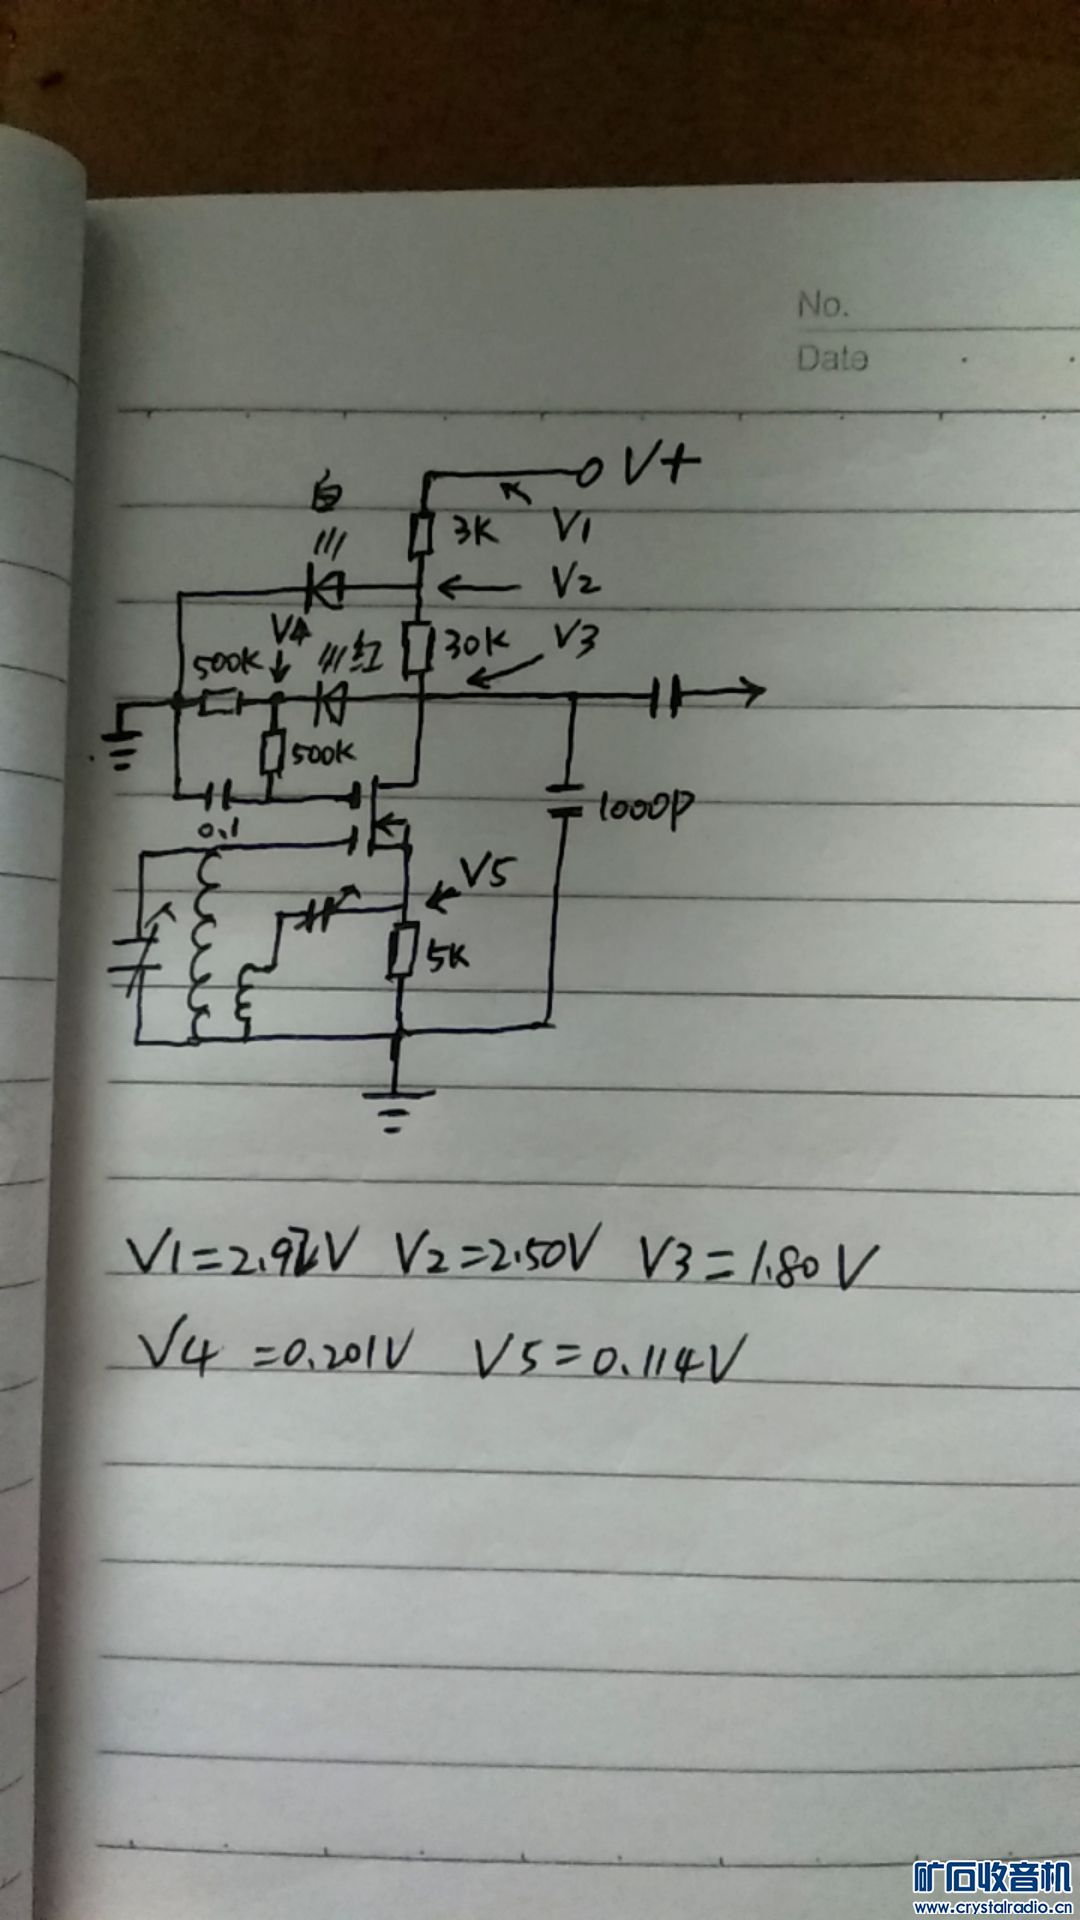 No.
Date
V+
白
3K V1
V2
V4
30K V3
500K 红
500K
0.1
1000P
V5
5K
V2=2.50V V3=1.80V
V4 =0.201V V5=0.114V
矿石收音机
www.crystalradio.cn